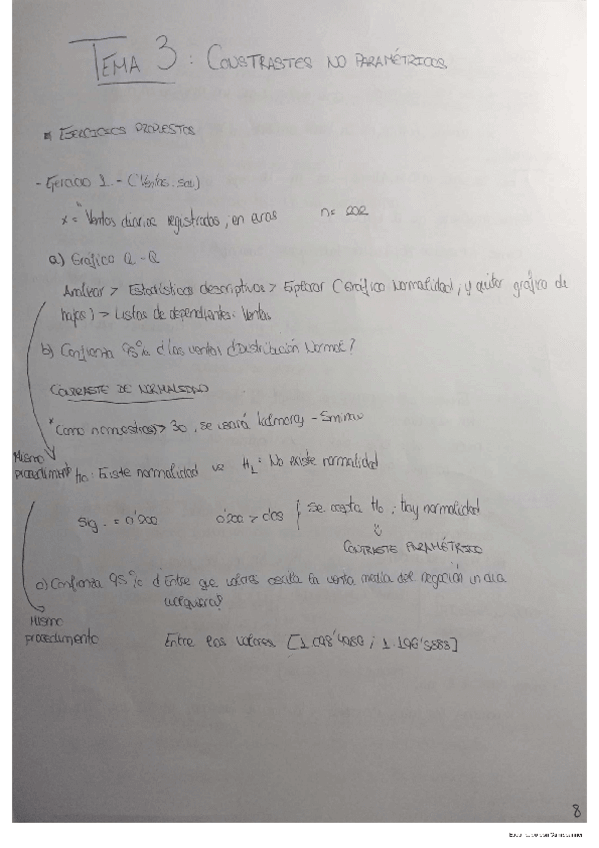 TEMA 3: CONSTRASTES NO PARAMÉTRICOS
EJERCICIOS PROPUESTOS
- Ejercicio 1.- (Ventas.sav)
x = "Ventas diarias registradas, en euros n= 202
a) Gráfico Q-Q
Analizar > Estadísticos descriptivos > Explorar (Gráfico Normalidad, y quitar gráfico de
hojas) > Listas de dependientes: Ventas
b) Confianza 95% ¿las ventas Distribución Normal?
CONTRASTE DE NORMALIDAD
*Como n > 30, se usará
Mismo
procedimiento
H0: Existe normalidad vs H1: No existe normalidad
Sig. = 0'200 0'200 > 0'05 { Se acepta H0; Hay normalidad
CONTRASTE PARAMÉTRICO
c) Confianza 95% ¿Entre que valores oscila la venta media del en una
cualquiera?
Mismo
procedimiento
Entre los valores ; 1.196'5883]
8